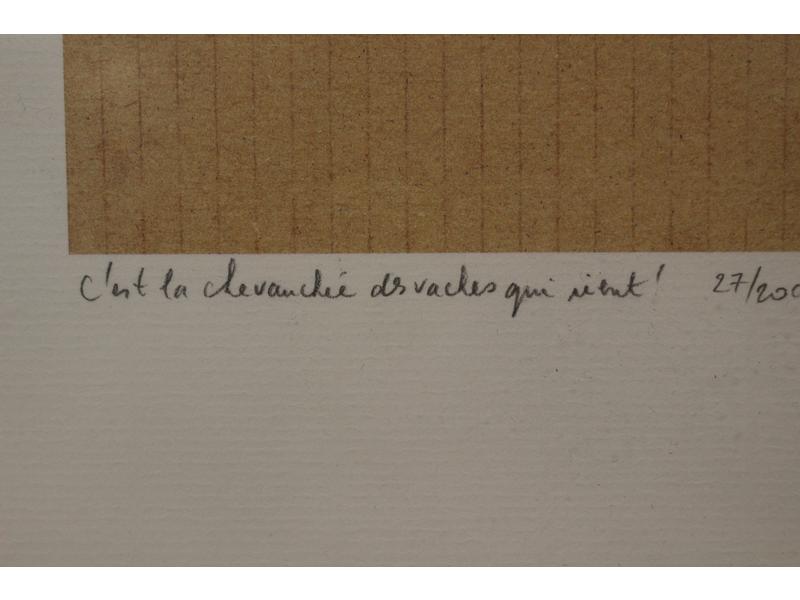 C'est la chevauchée des vaches qui rient ! 27/200